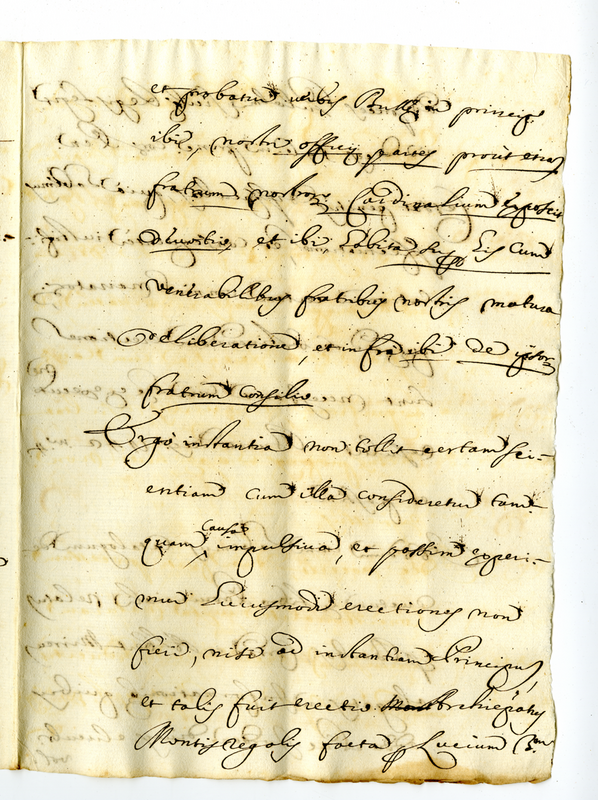 et probatur verbis Bullę in princip.
ibi, nostri officij partes prout etiam
fratrum nostrorũ Cardinalium exposcit
devotio et ibi habita sup. his cum
venerabilibus fratribus nostris matura
deliberatione, et infra ibi de ipsor
fratrum consilio
Ergo instantia non tollit certam sci-
entiam cum illa consideretur tam
quam causa impulsiva, et passim experi-
mur huiusmodi erectiones non
fieri, nisi ad instantiam Principũ,
et talis fuit erectio
Montis regalis facta p Lucium 3.m